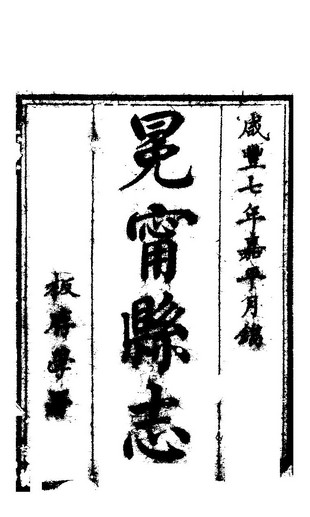 咸豐七年嘉平月鐫
冕甯縣志
板藏學署